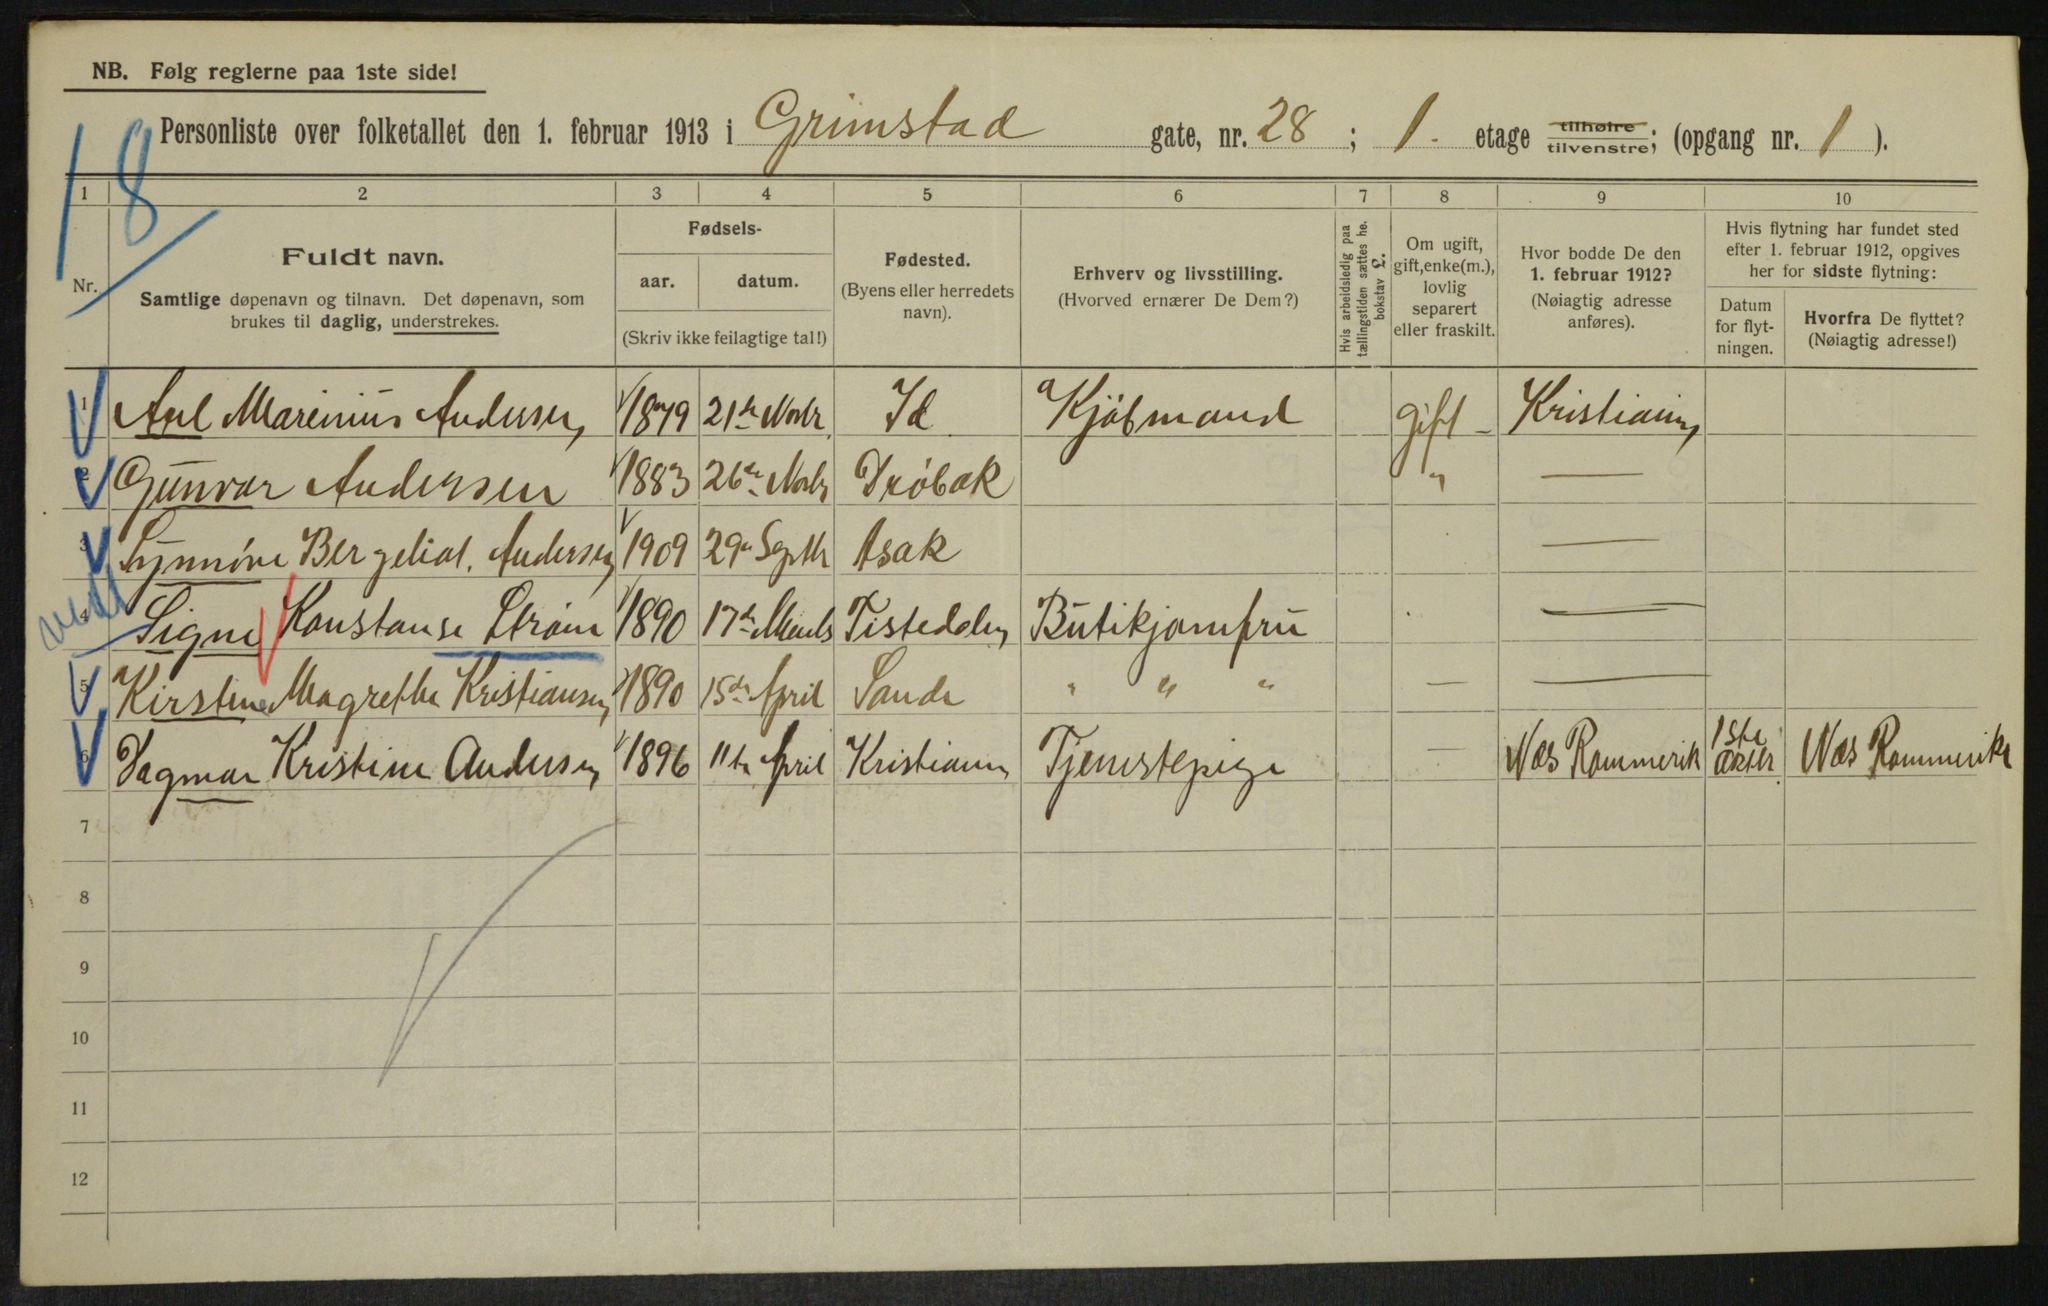 NB. Følg reglerne paa 1ste side!
Personliste over folketallet den 1. februar 1913 i Grimstad gate, nr. 28 ; 1. etage tilhøire tilvenstre; (opgang nr. 1 ).
18
1 2 3 4 5 6 7 8 9 10
Nr.
Fuldt navn.
Samtlige døpenavn og tilnavn. Det døpenavn, som
brukes til daglig, understrekes.
Fødsels-
aar. datum.
(Skriv ikke feilagtige tal!)
Fødested.
(Byens eller herredets
navn).
Erhverv og livsstilling.
(Hvorved ernærer De Dem?)
Hvis arbeidsledig paa
tællingstiden sættes he.
bokstav L.
Om ugift,
gift, enke(m.),
lovlig
separert
eller fraskilt.
Hvor bodde De den
1. februar 1912?
(Nøiagtig adresse
anføres).
Hvis flytning har fundet sted
efter 1. februar 1912, opgives
her for sidste flytning:
Datum
for flyt-
ningen.
Hvorfra De flyttet?
(Nøiagtig adresse!)
1 Axel Mareinius Andersen 1879 21de Novbr. Id Kjøbmand gift Kristiania
2 Gunvor Andersen 1883 26de Novbr Drøbak " —
3 Synnøve Bergeliot. Andersen 1909 29de Septbr Asak —
4 Signe Konstanse Strøm 1890 17de Marts Tistedalen Butikjomfru —
5 Kirstine Magrethe Kristiansen 1890 15de April Sande " " " — —
6 Dagmar Kristine Andersen 1896 11te April Kristiania Tjenstepige — Næs Rommerik 1ste oktbr. Næs Rommerike
7
8
9
10
11
12